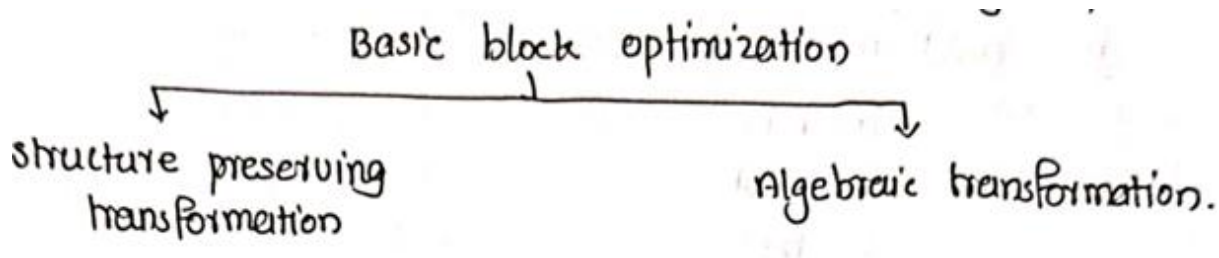 Basic block optimization
structure preserving
transformation
Algebraic transformation.